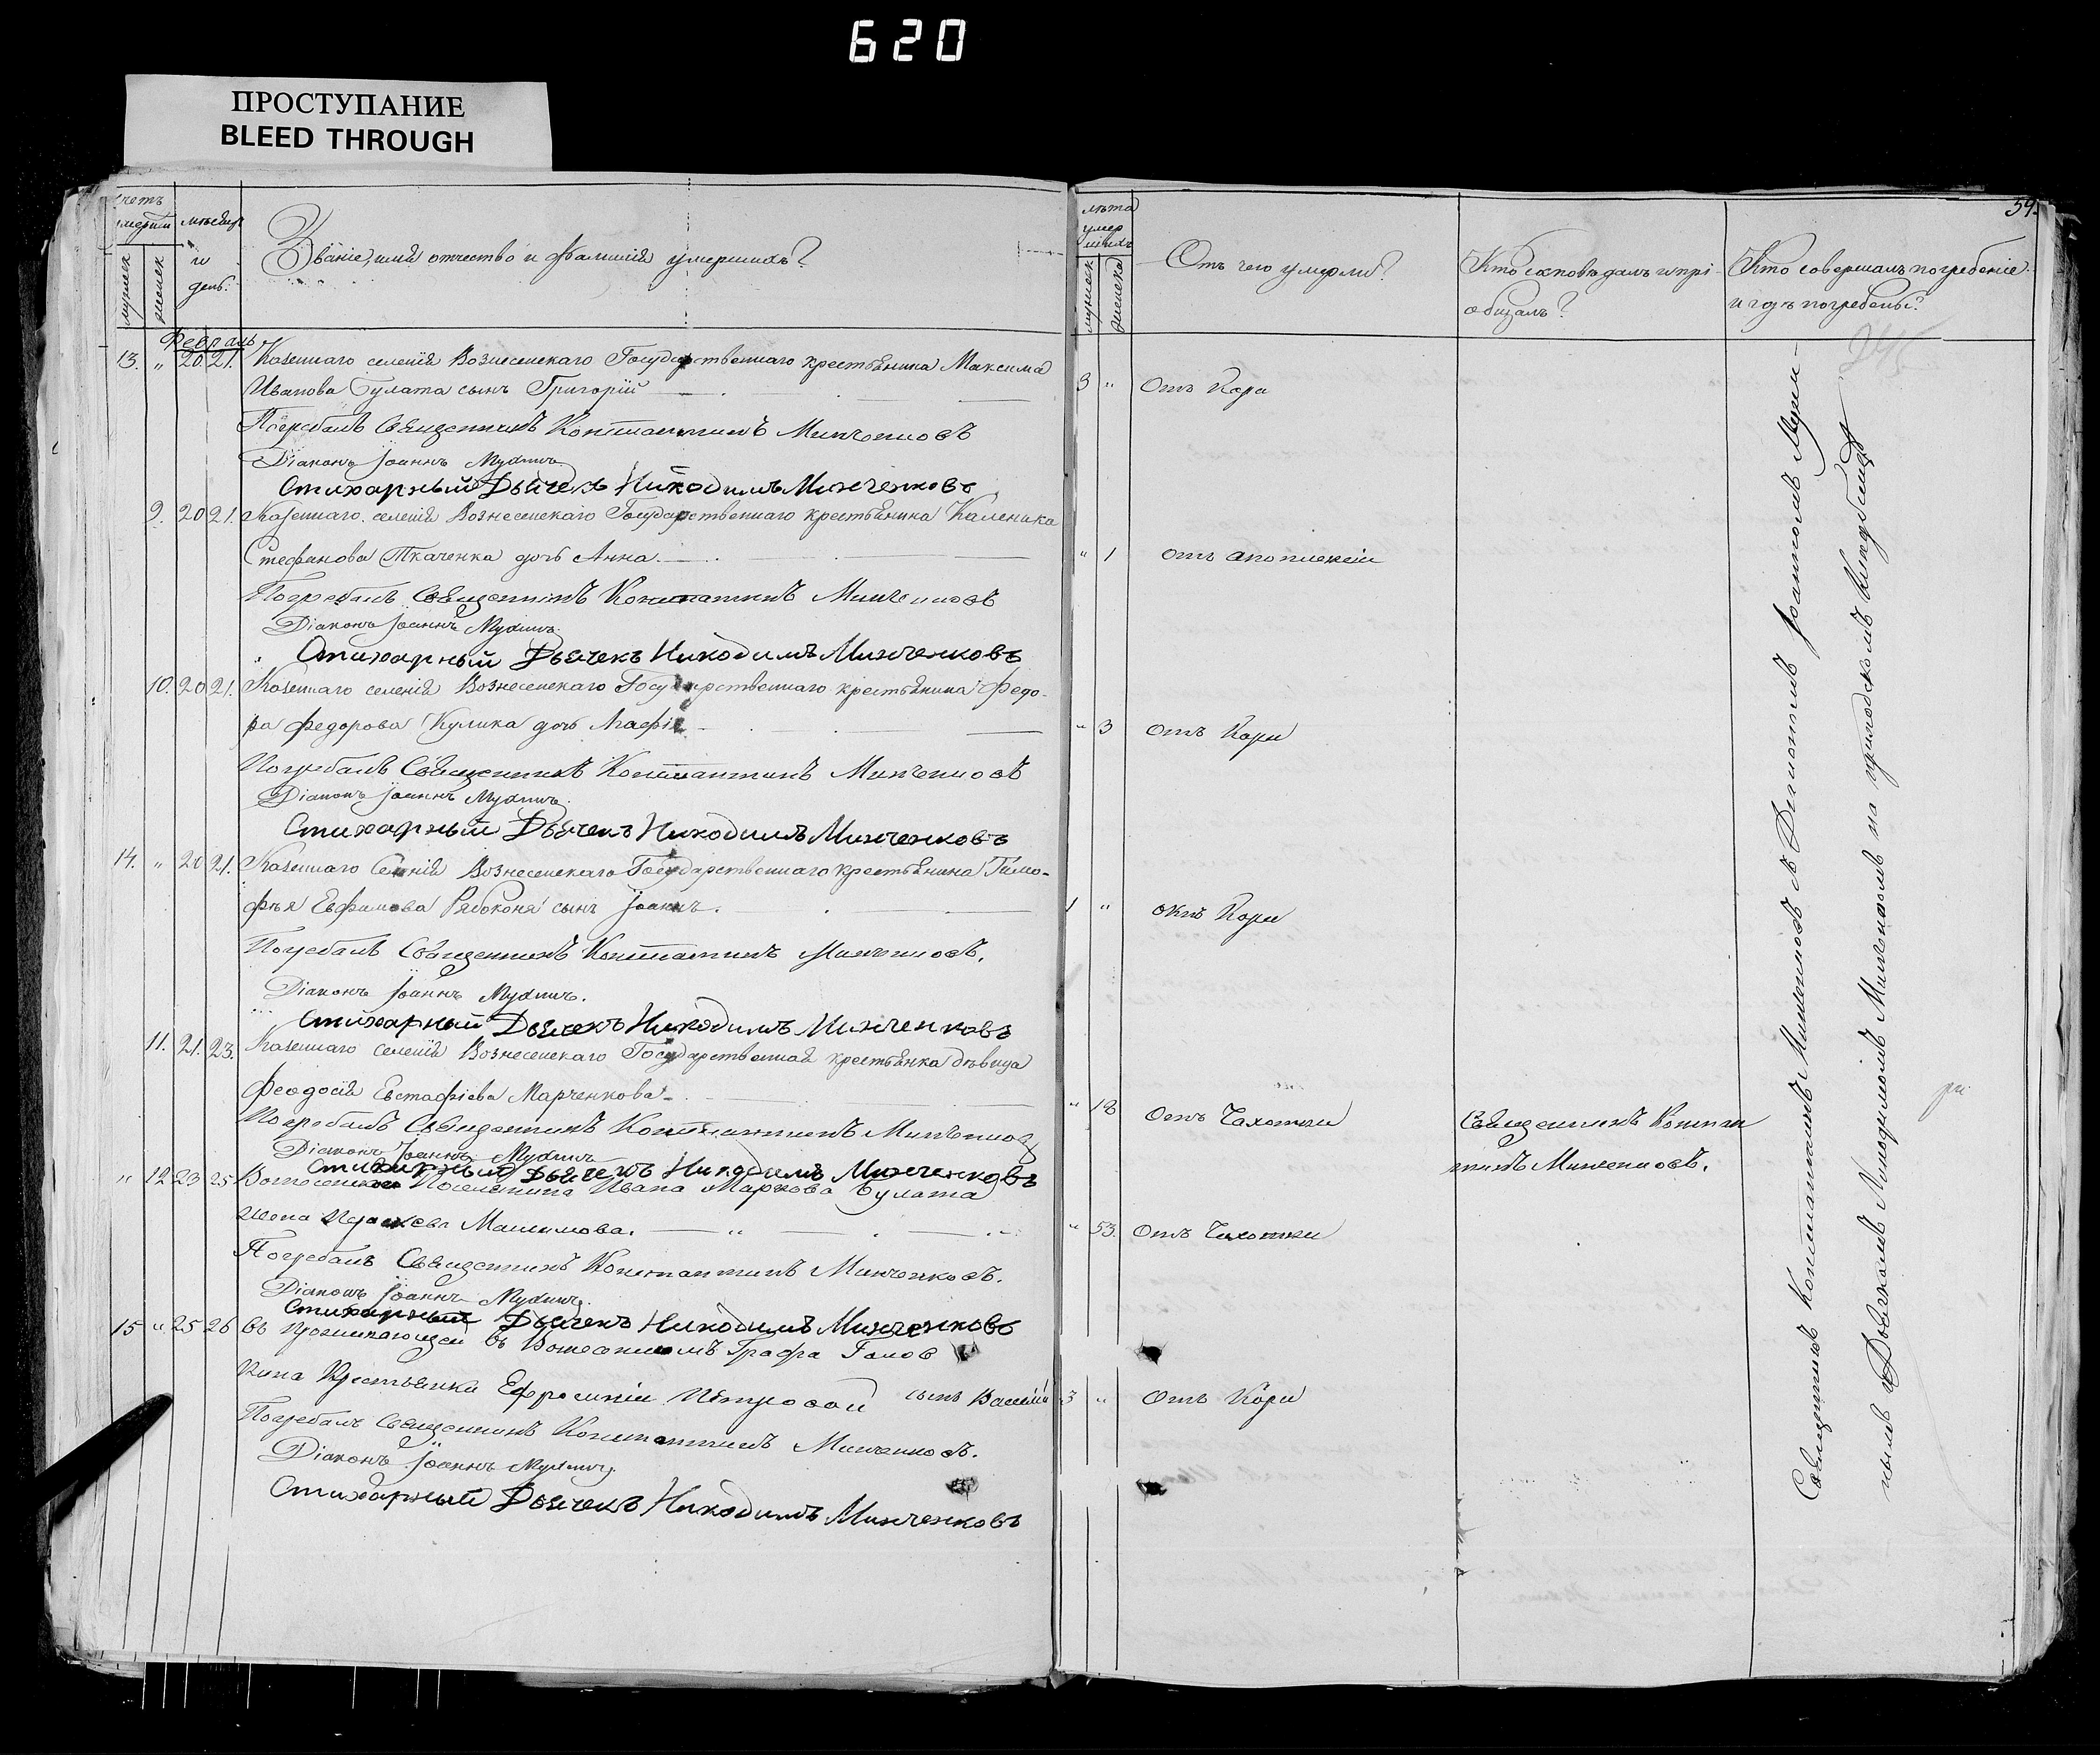 620
ПРОСТУПАНИЕ
BLEED THROUGH
счетъ
умерши
мужеск
женск
мѣсяцъ
и
день.
Званіе, имя отчество и фамилія умершихъ?
Февраль
13. " 20. 21. Казеннаго селенія Вознесенскаго Государственнаго крестьянина Максима
Иванова Булата сынъ Григорій
Погребалъ Священникъ Константинъ Минченковъ
Діаконъ Іоаннъ Мухинъ
Стихарный Дьячекъ Никодимъ Минченковъ
9. 20 21. Казеннаго селенія Вознесенскаго Государственнаго крестьянина Каленика
Стефанова Ткаченка дочь Анна.
Погребалъ Священникъ Константинъ Минченковъ
Діаконъ Іоаннъ Мухинъ
Стихарный Дьячекъ Никодимъ Минченковъ
10. 20 21. Казеннаго селенія Вознесенскаго Государственнаго крестьянина Федо-
ра Федорова Кулика дочь Агафія
Погребалъ Священникъ Константинъ Минченковъ
Діаконъ Іоаннъ Мухинъ.
Стихарный Дьячекъ Никодимъ Минченковъ
14. " 20 21. Казеннаго Селенія Вознесенскаго Государственнаго крестьянина Тимо-
фѣя Евфимова Рябоконя сынъ Іоаннъ.
Погребалъ Священникъ Константинъ Минченковъ.
Діаконъ Іоаннъ Мухинъ.
Стихарный Дьячекъ Никодимъ Минченковъ
11. 21. 23. Казеннаго селенія Вознесенскаго Государственная крестьянка дѣвица
Феодосія Евстафіева Марченкова
Погребалъ Священникъ Константинъ Минченковъ
Діаконъ Іоаннъ Мухинъ
Стихарный Дьячекъ Никодимъ Минченковъ
" 12 23 25 Поселянина Ивана Маркова Булата
жена Максимова.
Погребалъ Священникъ Константинъ Минченковъ.
Діаконъ Іоаннъ Мухинъ.
Стихарный Дьячекъ Никодимъ Минченковъ
15 " 25 26 въ Графа Голов
кина Крестьянки Ефросиніи Петровой сынъ Василій
Погребалъ Священникъ Константинъ Минченковъ.
Діаконъ Іоаннъ Мухинъ.
Стихарный Дьячекъ Никодимъ Минченковъ
59.
лѣта
умер
шихъ
мужеск
женска
Отъ чего умерли?
Кто исповѣдалъ и прі-
общалъ?
Кто совершалъ погребеніе
и гдѣ погребены?
3 " Отъ Кори
" 1 Отъ апоплексіи
" 3 Отъ Кори
1 " Отъ Кори
" 18 Отъ Чахотки
Священникъ Констан
тинъ Минченковъ.
" 53. Отъ Чахотки
3 " Отъ Кори
Священникъ Константинъ Минченковъ съ Діакономъ Іоанномъ Мухи-
нымъ Дьячкомъ Никодимомъ Минченковымъ на приходскомъ кладбищѣ